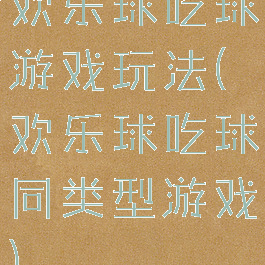 欢乐球吃球
游戏玩法(
欢乐球吃球
同类型游戏
)